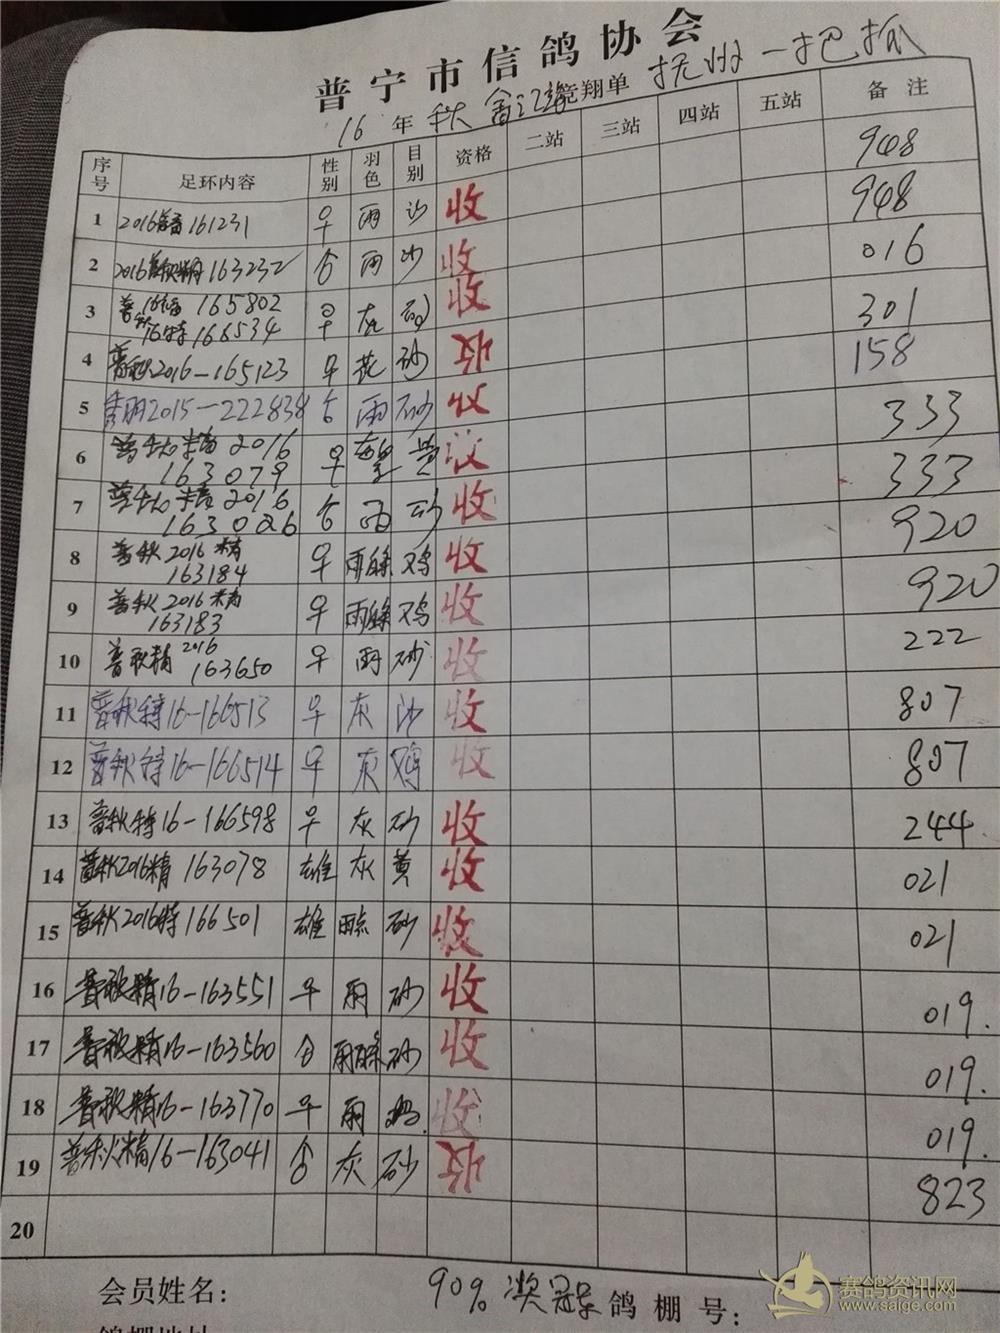 普宁市信鸽协会
16 年 秋 竞翔单 抚州一把抓
序号 足环内容 性别 羽色 目别 资格 二站 三站 四站 五站 备注
948
1 2016 161231 早 雨 沙 收 948
2 2016 163232 雨 沙 收 016
3 165802 灰 收 301
166534
4 普秋2016-165123 早 花 砂 收 158
5 2015-222838 雨 砂 收 333
6 2016 黄 收 333
163079
7 2016 雨 砂 收 920
163026
8 普秋2016精 早 雨 鸡 收 920
163184
9 普秋2016精 早 雨 鸡 收 222
163183
10 普秋精2016 163650 早 雨 砂 收 807
11 普秋特16-166513 早 灰 沙 收 807
12 普秋特16-166514 早 灰 鸡 收 244
13 普秋特16-166598 早 灰 砂 收 021
14 普秋2016精 163078 雄 灰 黄 收 021
15 普秋2016特166501 雄 砂 收 019.
16 普秋精16-163551 早 雨 砂 收 019.
17 普秋精16-163560 砂 收 019.
18 普秋精16-163770 早 雨 收 823
19 普秋精16-163041 灰 砂 收
20
会员姓名： 90% 鸽棚号：
赛鸽资讯网
www.saige.com